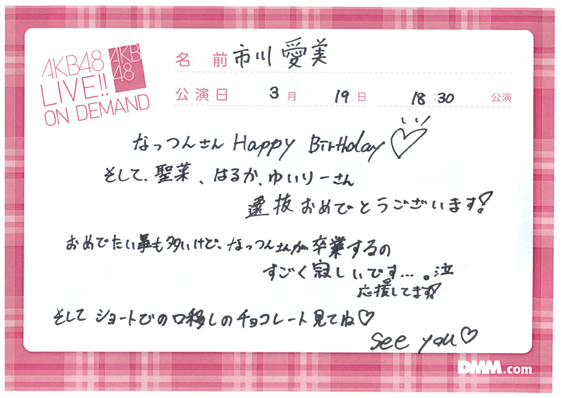 AKB48
LIVE!!
ON DEMAND
AKB
48
名前 市川愛美
公演日 3月 19日 18:30 公演
なっつんさん Happy Birthday♡
そして、聖菜、はるか、ゆいりーさん
選抜おめでとうございます!
おめでたい事も多いけど、なっつんさんが卒業するの
すごく寂しいです…。泣
応援してます!
そして ショートでの口移しのチョコレート見てね♡
see you♡
DMM.com